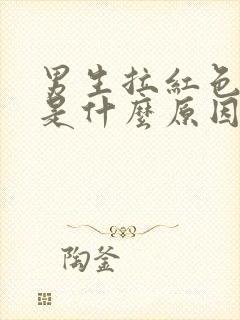 男生拉紅色
是什麼原因
陶釜